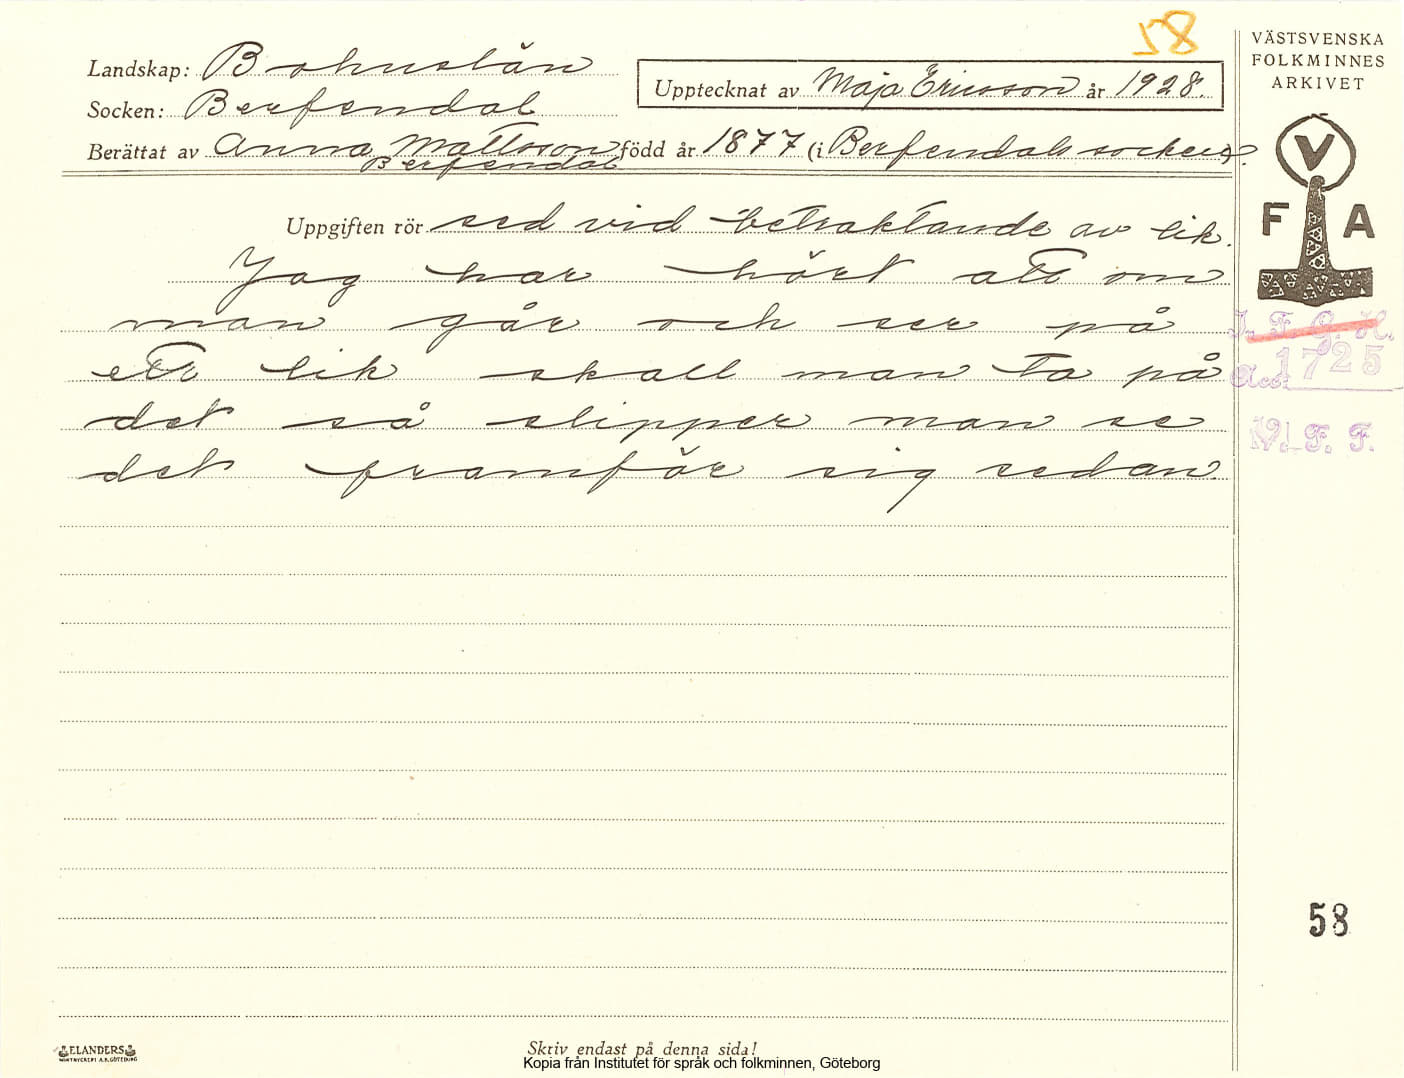 58
VÄSTSVENSKA
FOLKMINNES
ARKIVET
Landskap: Bohuslän
Upptecknat av Maja Ericsson år 1928.
Socken: Berfendal
Berättat av Anna Mattsson född år 1877 (i Berfendals socken).
Berfendal
V
F A
Uppgiften rör sed vid betraktande av lik.
Jag har hört att om
man går och ser på
ett lik skall man ta på
det så slipper man se
det framför sig sedan.
I. F. G. H.
Acc. 1725
V. F. F.
58
ELANDERS
Skriv endast på denna sida!
Kopia från Institutet för språk och folkminnen, Göteborg